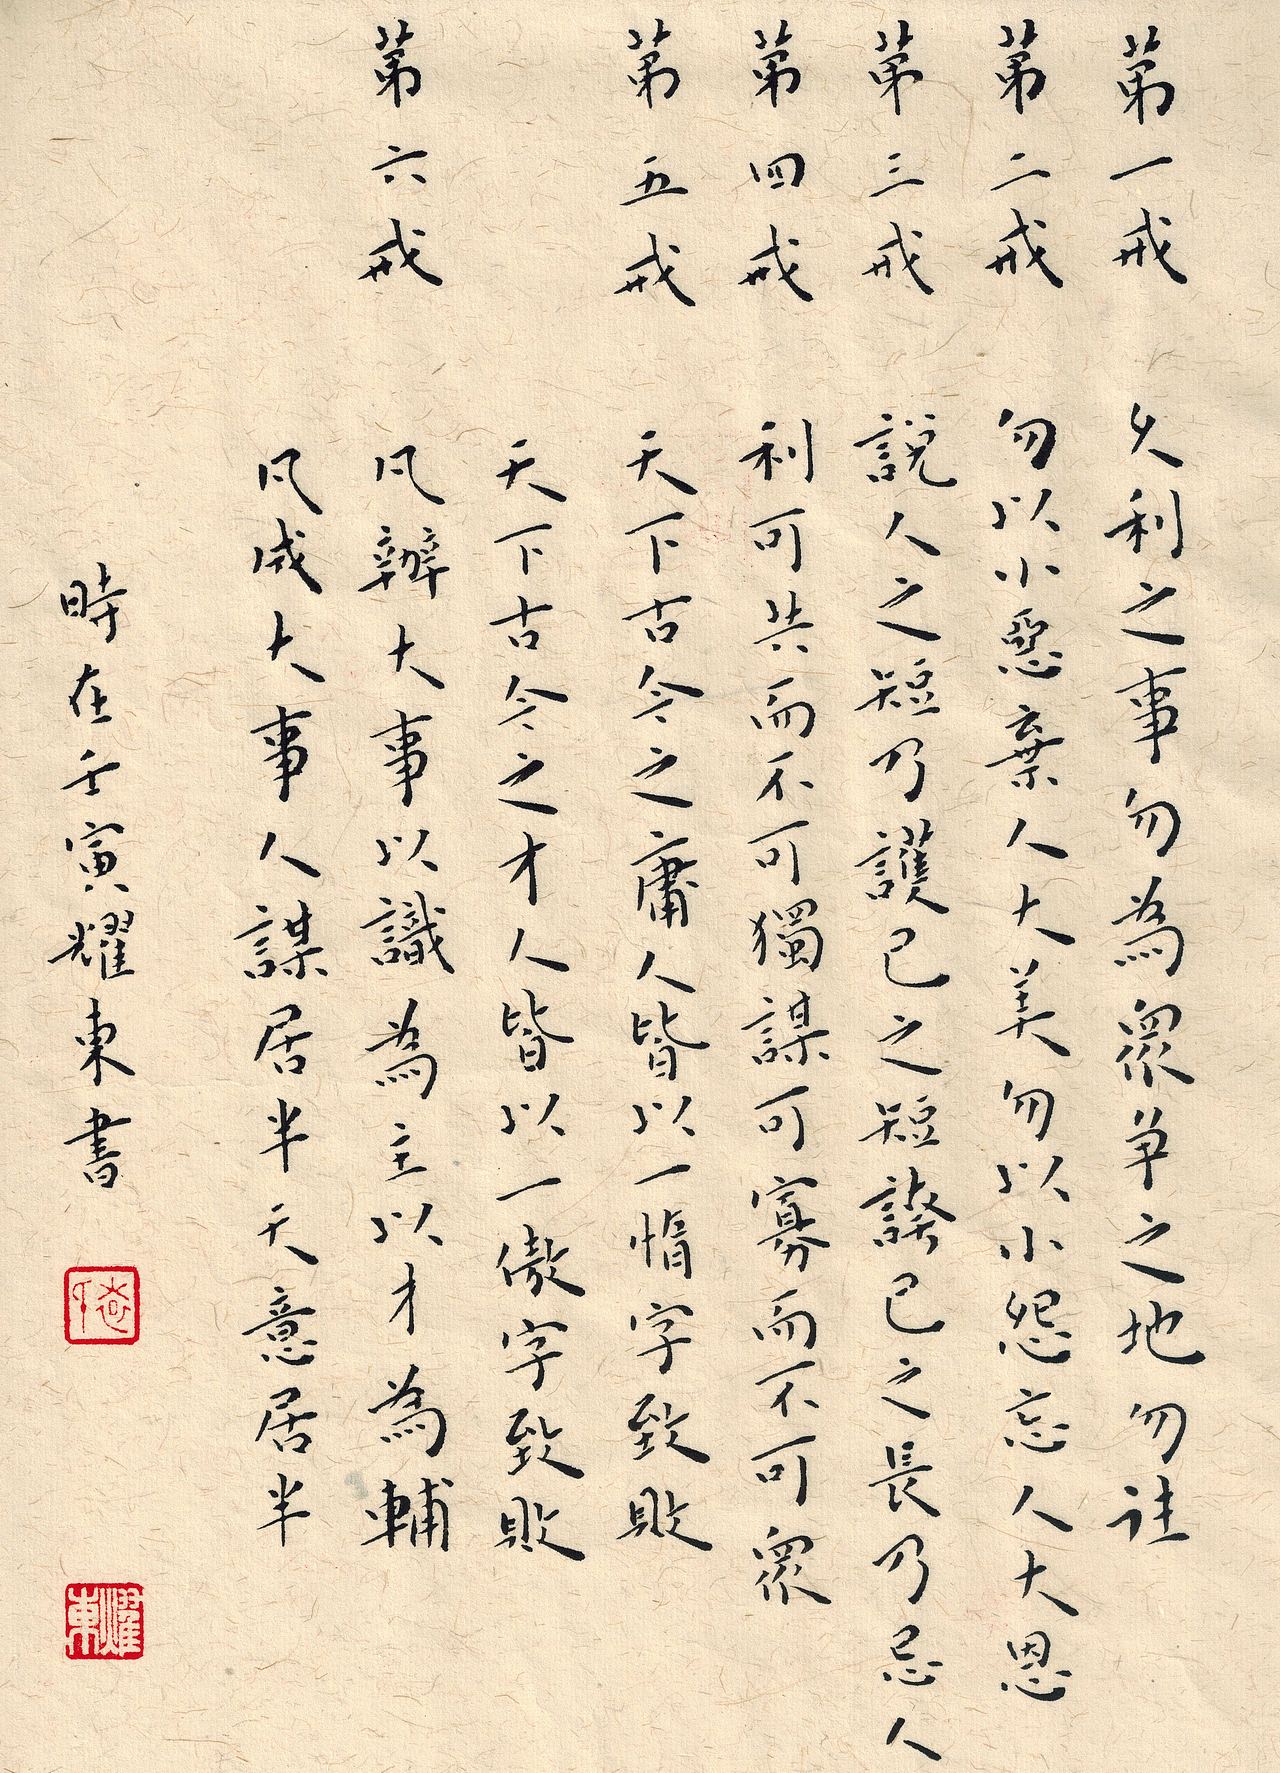 第一戒 久利之事勿為眾争之地勿往
第二戒 勿以小惡棄人大美勿以小怨忘人大恩
第三戒 說人之短乃護己之短誇己之長乃忌人
第四戒 利可共而不可獨謀可寡而不可眾
第五戒 天下古今之庸人皆以一惰字致敗
天下古今之才人皆以一傲字致敗
第六戒 凡辦大事以識為主以才為輔
凡成大事人謀居半天意居半
時在壬寅耀東書
耀東